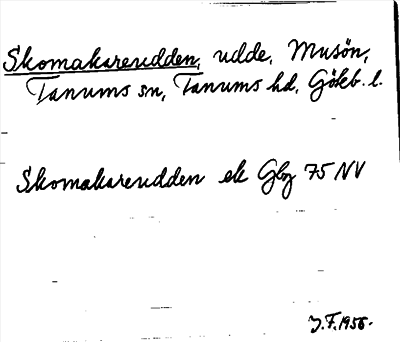 Skomakareudden, udde, Musön,
Tanums sn, Tanums hd, Götcb. l.
Skomakareudden ek Gbg 75 NV
J.F. 1956.